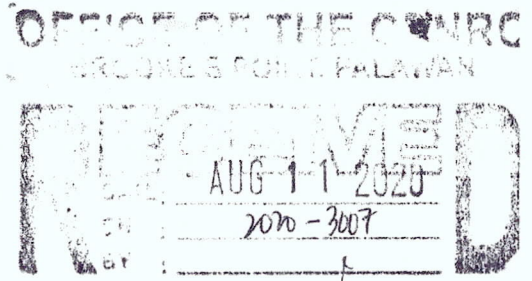 OFFICE OF THE CENRC
BROOKE'S POINT, PALAWAN
RECEIVED
AUG 11 2020
2020-3007
BY :